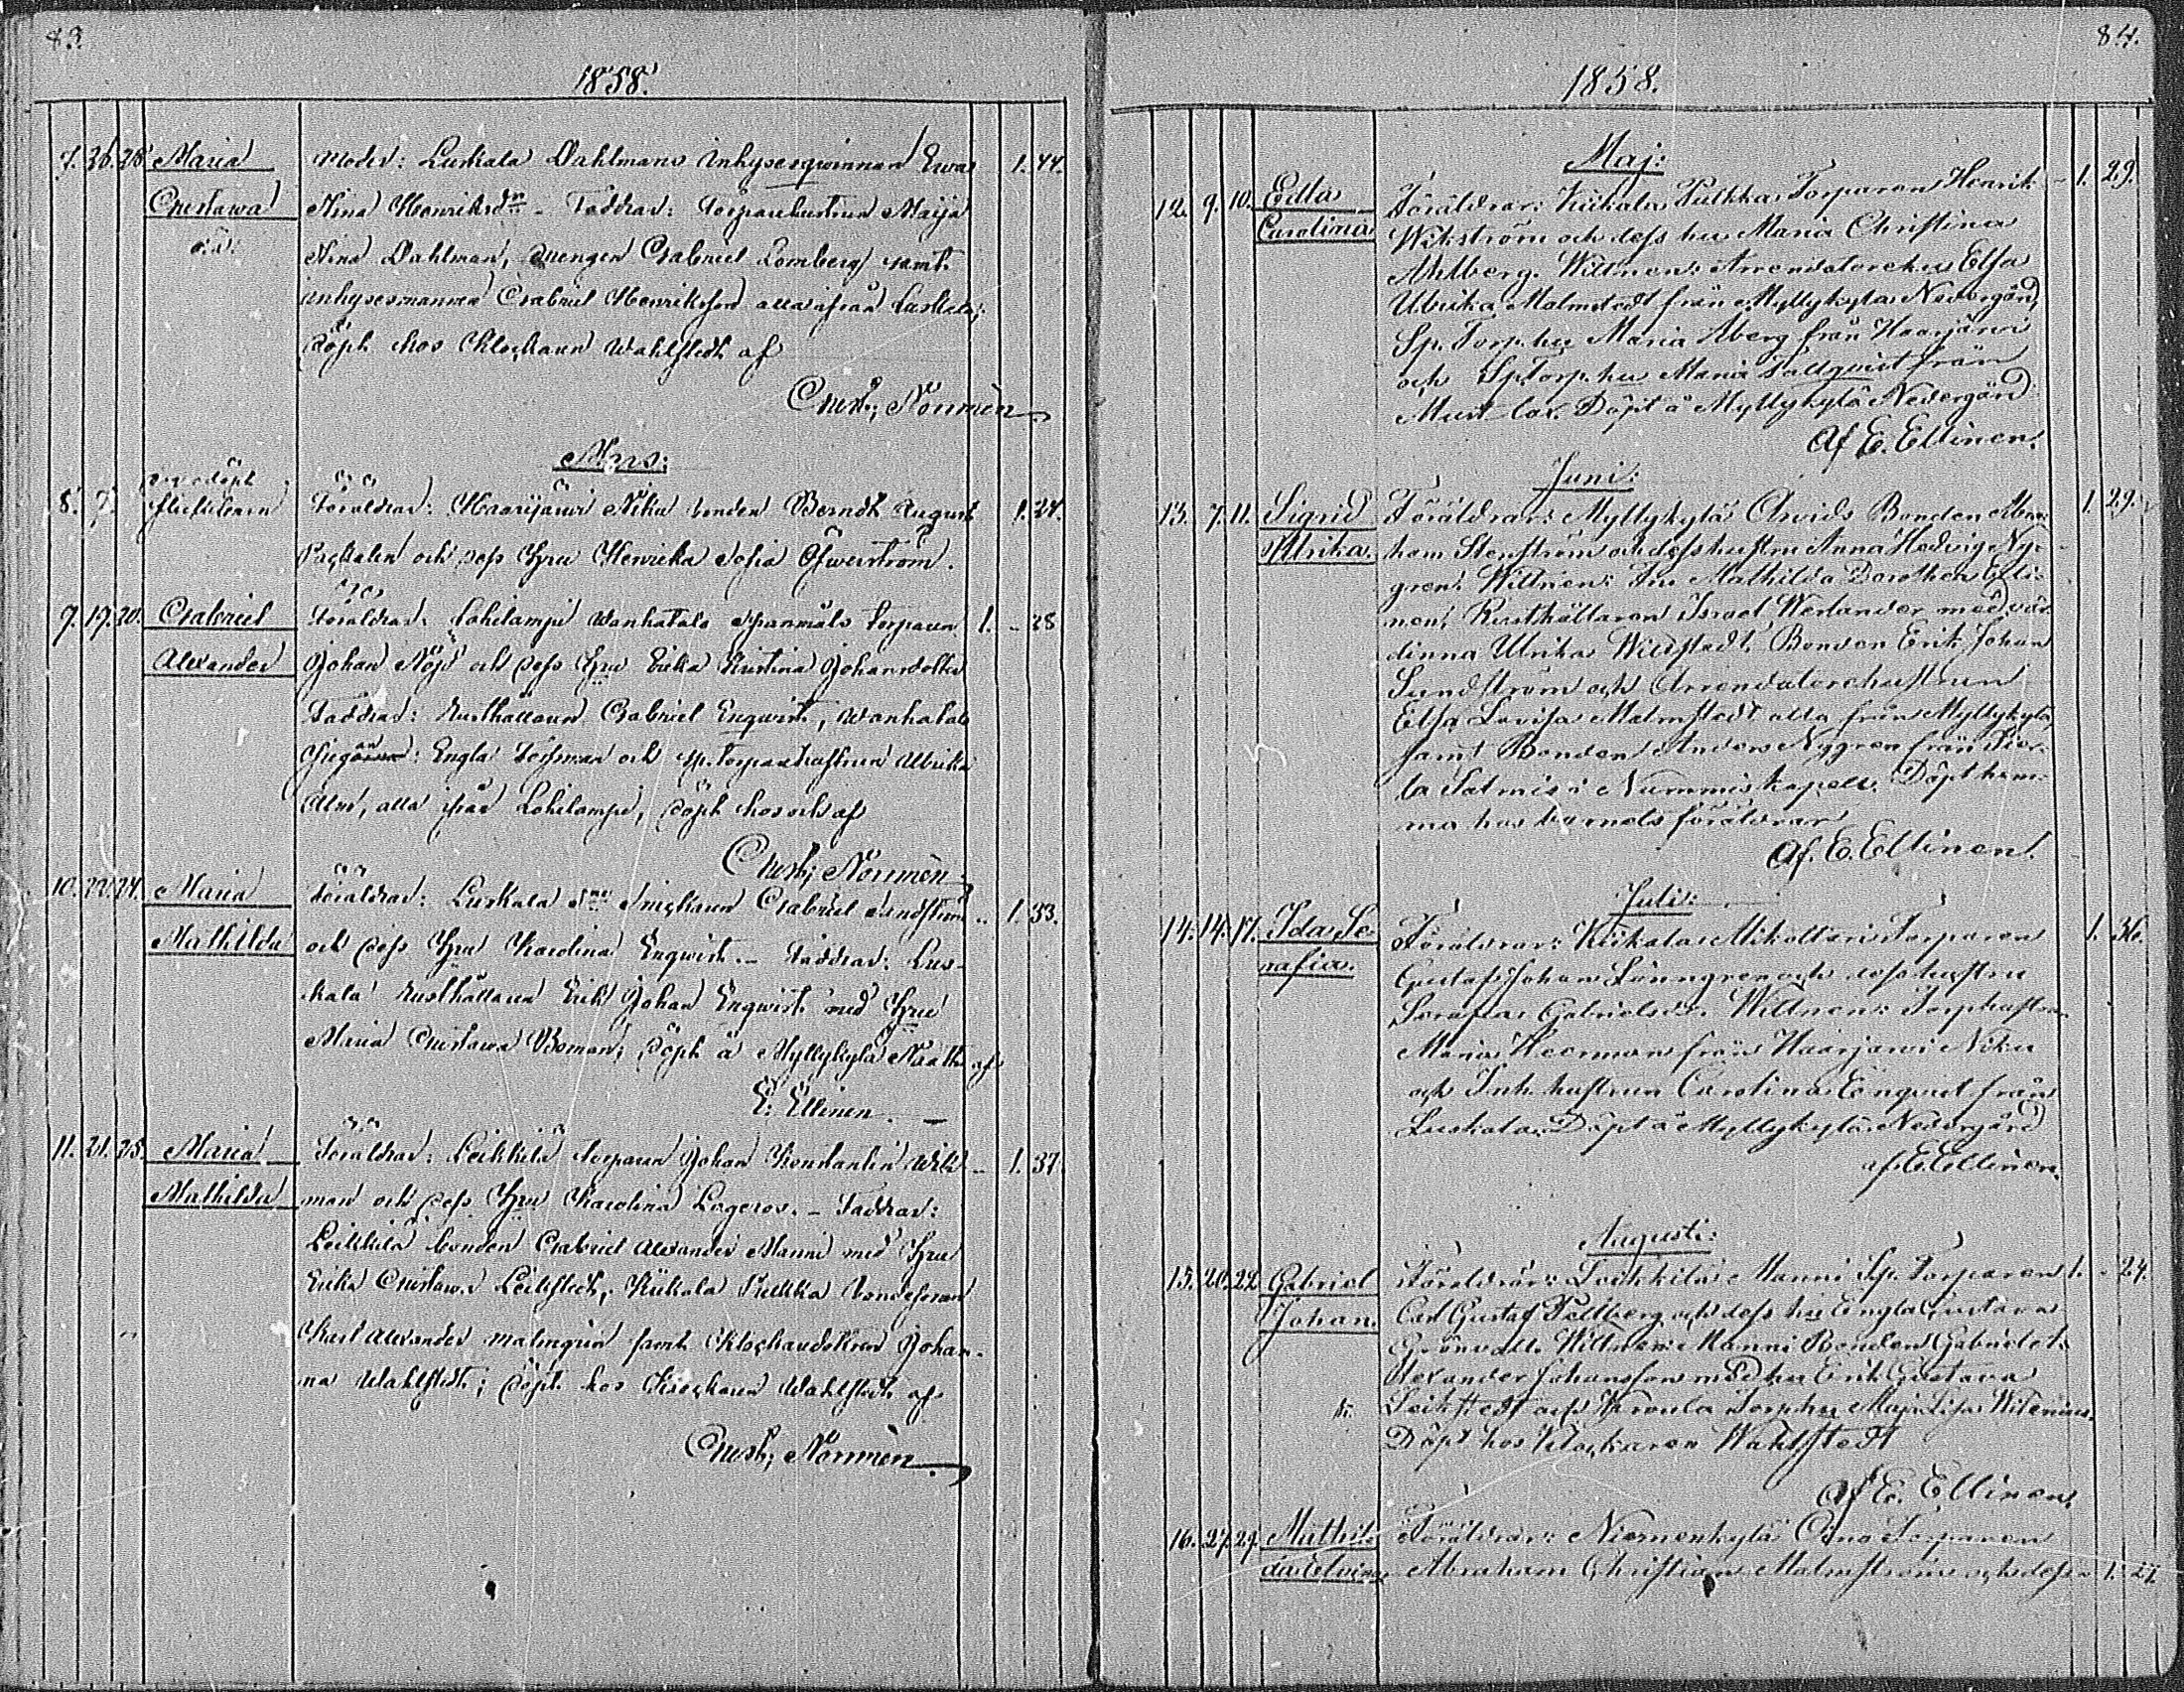 83.
1858.
7. 26. 28. Maria Moder: Luskala Dahlmans inhysesqwinnan Ewa 1. 44.
Gustawa Nina Henriksdr. - Faddrar: Torparehustrun Maija
o.ä. Nina Dahlman, drengen Gabriel Lomberg samt
inhysesmannen Gabriel Henriksson alla ifrån Luskala;
döpt hos Klockaren Wahlstedt af
Gust: Norrmén
Mars:
8. 7. odöpt flickebarn Föräldrar: Haarijärwi Niku bonden Berndt August 1. 24.
och dess Hru Henrika Sofia Öfwerström.
9. 19. 20. Gabriel Föräldrar: Lohilampi Wanhatalo Spanmåls torparen 1. - 28
Alexander Johan Nöjd och dess Hru Erika Kristina Johansdotter
Faddrar: Rusthållaren Gabriel Engwist, Wanhatalo
Pigan: Engla och sp. torparehustrun Ulrika
Alm, alla ifrån Lohilampi, döpt hos och af
Gust; Norrmén
10. 22. 24. Maria Föräldrar: Luskala Snickaren Gabriel Sundström 1. 33.
Mathilda och dess Hru Karolina Engwist. - Faddrar: Lus-
kala Rusthållaren Erik Johan Engwist med Hru
Maria Gustawa Boman; döpt å Myllykylä af
E: Ellinen
11. 21. 25. Maria Föräldrar: Leikkilä torparen Johan Konstantin Wik- 1. 37.
Mathilda man och dess Hru Karolina Lageros. - Faddrar:
Leikkilä bonden Gabriel Alexander Manni med Hru
Erika Gustawa Leikstedt, Kiikala Pulkka bondesonen
Karl Alexander Malmgrén samt Klockaredottren Johan-
na Wahlstedt; döpt hos Klockaren Wahlstedt af
Gust; Norrmén
84.
1858.
Maj:
12. 9. 10. Edla Föräldrar: Kiikala Pulkka Torparen Henrik - 1. 29.
Carolina Wikström och dess hu Maria Christina
Ahlberg. Wittnen: Arrendatorehu Elsa
Ulrika Malmstedt från Myllykylä Nedergård,
Sp. Torp. hu Maria Åberg från Haarjärwi
och Sp Torp. hu Maria Tallqvist från
Döpt å Myllykylä Nedergård
Af E. Ellinen.
Juni:
13. 7. 11. Sigrid Föräldrar: Myllykylä Arvids Bonden Abra- 1. 29.
Ulrika. ham Stenström och dess hustru Anna Hedvig Ny-
gren. Wittnen: Fru Mathilda Dorothea Elli-
nen, Rusthållaren Israel Welander med vär-
dinna Ulrika Willstedt, Bonden Erik Johan
Sundström och Arrendatorehustrun
Elsa Lovisa Malmstedt alla från Myllykylä,
samt Bonden Anders Nygren från
Salmis i Nummis kapell. Döpt hem-
ma hos barnets föräldrar
Af. E. Ellinen.
Juli:
14. 14. 17. Ida Se- Föräldrar: Kiikala Mikolteri Torparen 1. 36.
rafia. Gustaf Johan Lönngren och dess hustru
Serafia Gabrielsdr. Wittnen: Torphustrun
Maria Heerman från Haarjärwi Niku
och Inh. hustrun Carolina Enqvist från
Luskala. Döpt å Myllykylä Nedergård
af E. Ellinen.
Augusti:
15. 20. 22. Gabriel Föräldrar: Leikkilä Manni Sp. Torparen 1. - 24.
Johan. Carl Gustaf Fellberg och dess hu Engla Gustava
Grönvall. Wittnen: Manni Bonden Gabriel
Alexander Johansson med hu Erik Gustava
Leikstedt och Torp hu Maja Lisa Witenius.
Döpt hos Klockaren Wahlstedt
Af E. Ellinen.
16. 27. 29. Mathil- Föräldrar: Niemenkylä Torparen
da Elvina Abraham Christian Malmström och dess 1. 27.